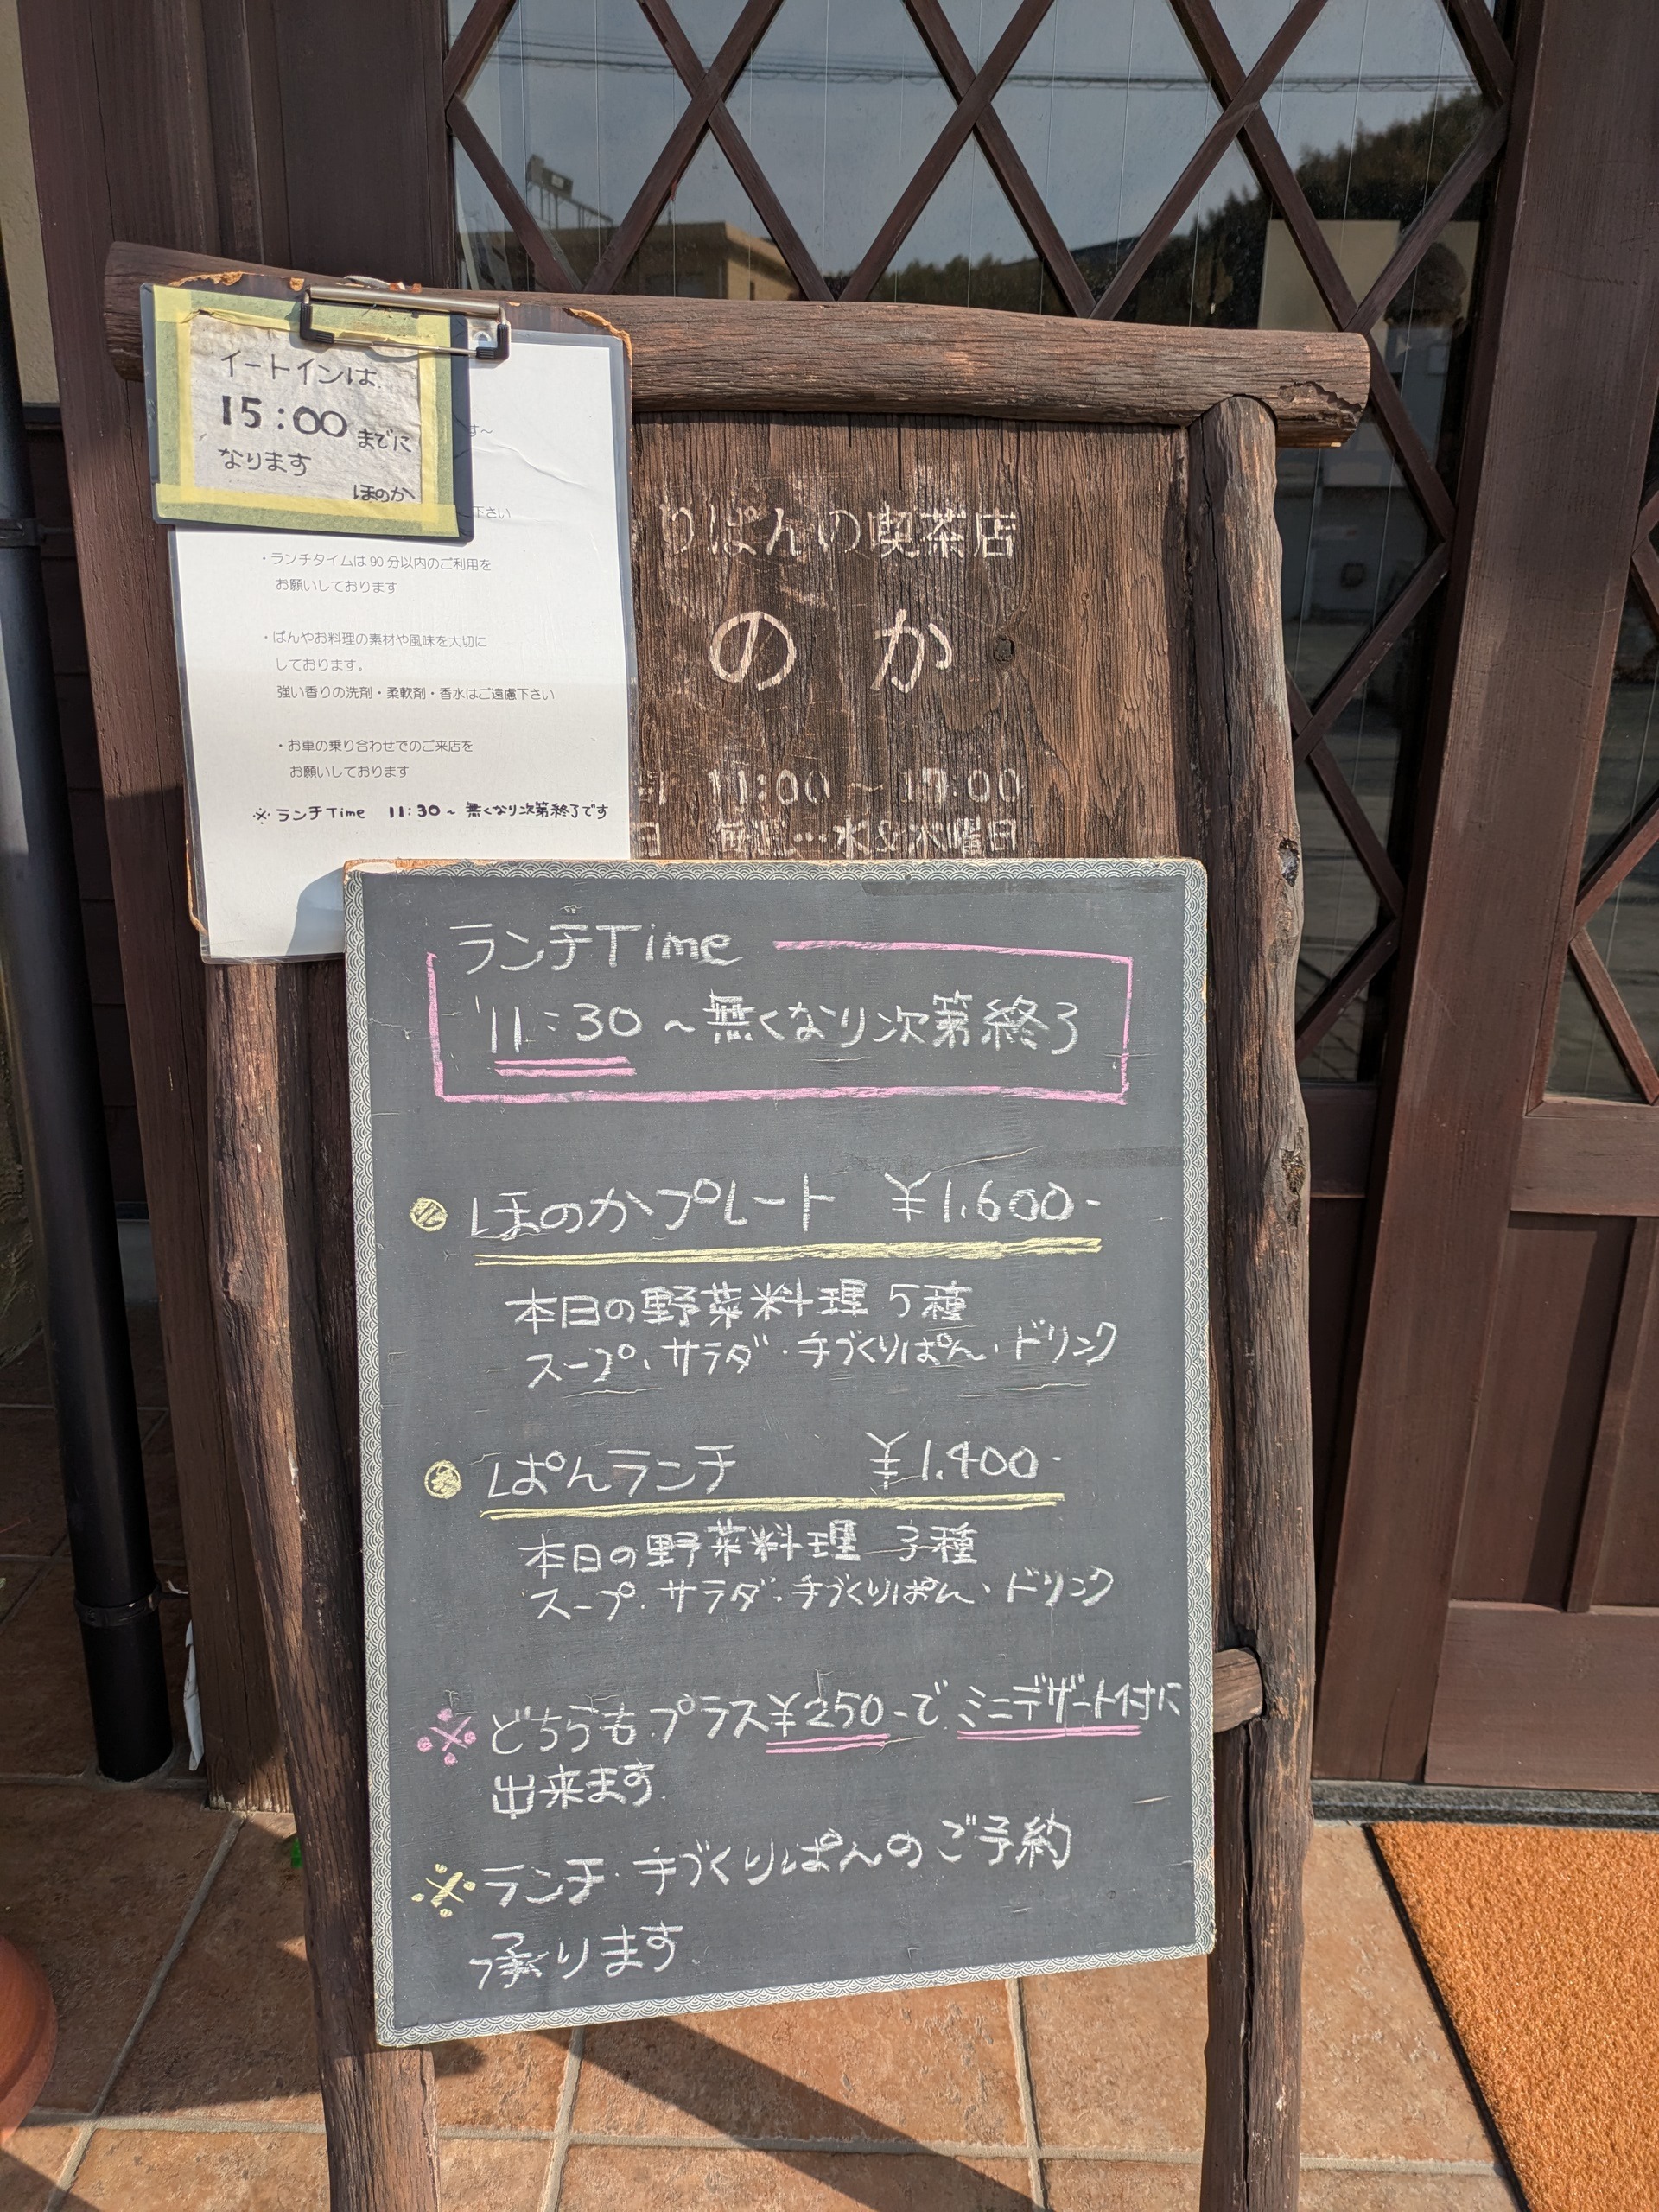 イートインは
15:00までに
なります
ほのか
す～
下さい
・ランチタイムは90分以内のご利用を
お願いしております
・ぱんやお料理の素材や風味を大切に
しております。
強い香りの洗剤・柔軟剤・香水はご遠慮下さい
・お車の乗り合わせでのご来店を
お願いしております
※ランチTime 11:30～無くなり次第終了です
りぱんの喫茶店
のか
11:00～17:00
日
曜日
ランチTime
11:30～無くなり次第終了
ほのかプレート ¥1,600-
本日の野菜料理 5種
スープ・サラダ・手づくりぱん・ドリンク
ぱんランチ ¥1,400-
本日の野菜料理 3種
スープ・サラダ・手づくりぱん・ドリンク
※どちらもプラス¥250-でミニデザート付に
出来ます。
※ランチ・手づくりぱんのご予約
承ります